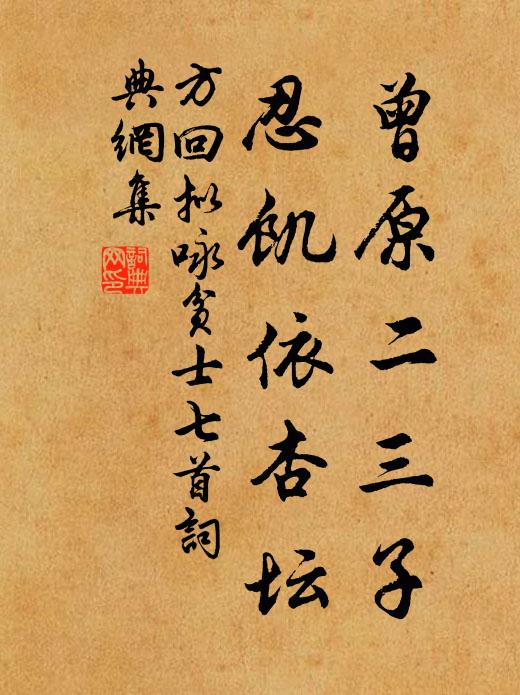 曾原二三子
忍飢依杏坛
方回拟咏贫士七首詞
典網集
詞典網印